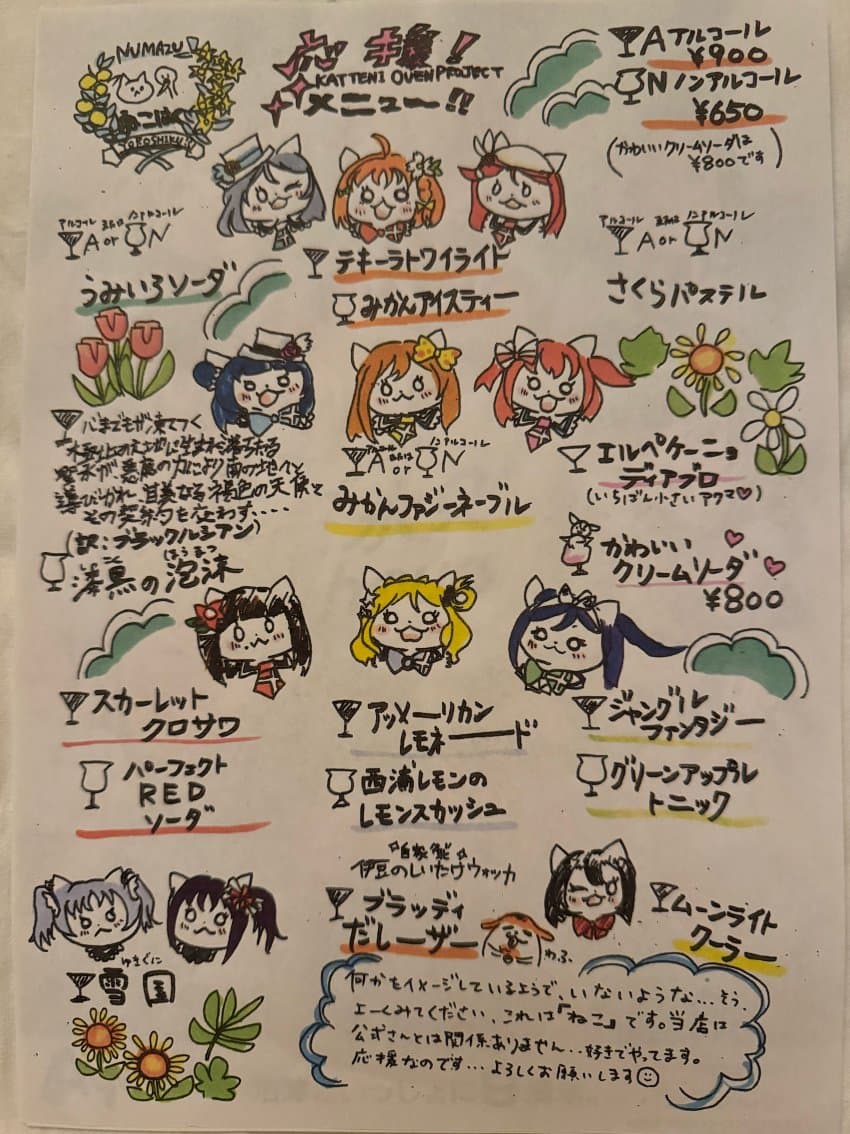 NUMAZU
ねこはく
YOROSHIKU!!
応援!
KATTENI OUENPROJECT
メニュー!!
A アルコール
¥900
N ノンアルコール
¥650
(かわいいクリームソーダは
¥800です)
アルコール または ノンアルコール
A or N
うみいろソーダ
テキーラトワイライト
みかんアイスティー
アルコール または ノンアルコール
A or N
さくらパステル
心までもが凍てつく
の大地に生まれ落ちた
が、悪魔の力により南の地へと
導びかれ、甘美なる褐色の天使と
その契約を交わす・・・・
(訳:ブラックルシアン)
しっこく ほうまつ
漆黒の泡沫
アルコール または ノンアルコール
A or N
みかんファジーネーブル
エルペケーニョ
ディアブロ
(いちばん小さいアクマ♡)
かわいい
クリームソーダ
¥800
スカーレット
クロサワ
パーフェクト
RED
ソーダ
アッメーリカン
レモネード
西浦レモンの
レモンスカッシュ
ジャングル
ファンタジー
グリーンアップル
トニック
ゆきぐに
雪国
自家製
伊豆のしいたけウォッカ
ブラッディ
だしーザー
わふ
ムーンライト
クーラー
何かをイメージしているようで、いないような...そう、
よーくみてください、これは『ねこ』です。当店は
公式さんとは関係ありません..好きでやってます。
応援なのです...よろしくお願いします☺